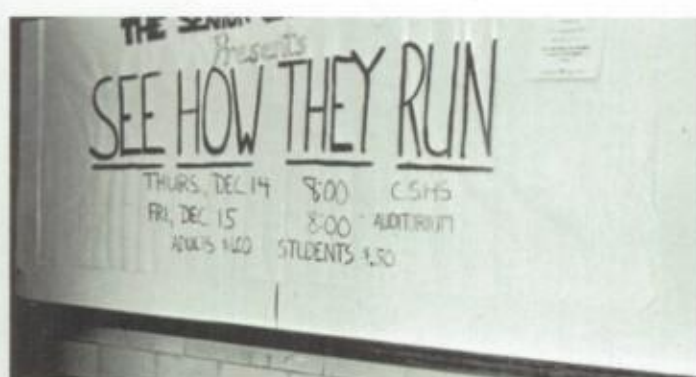 THE SENIOR
Presents
SEE HOW THEY RUN
THURS, DEC 14 8:00 CSHS
FRI, DEC 15 8:00 AUDITORIUM
ADULTS $1.00 STUDENTS $.50